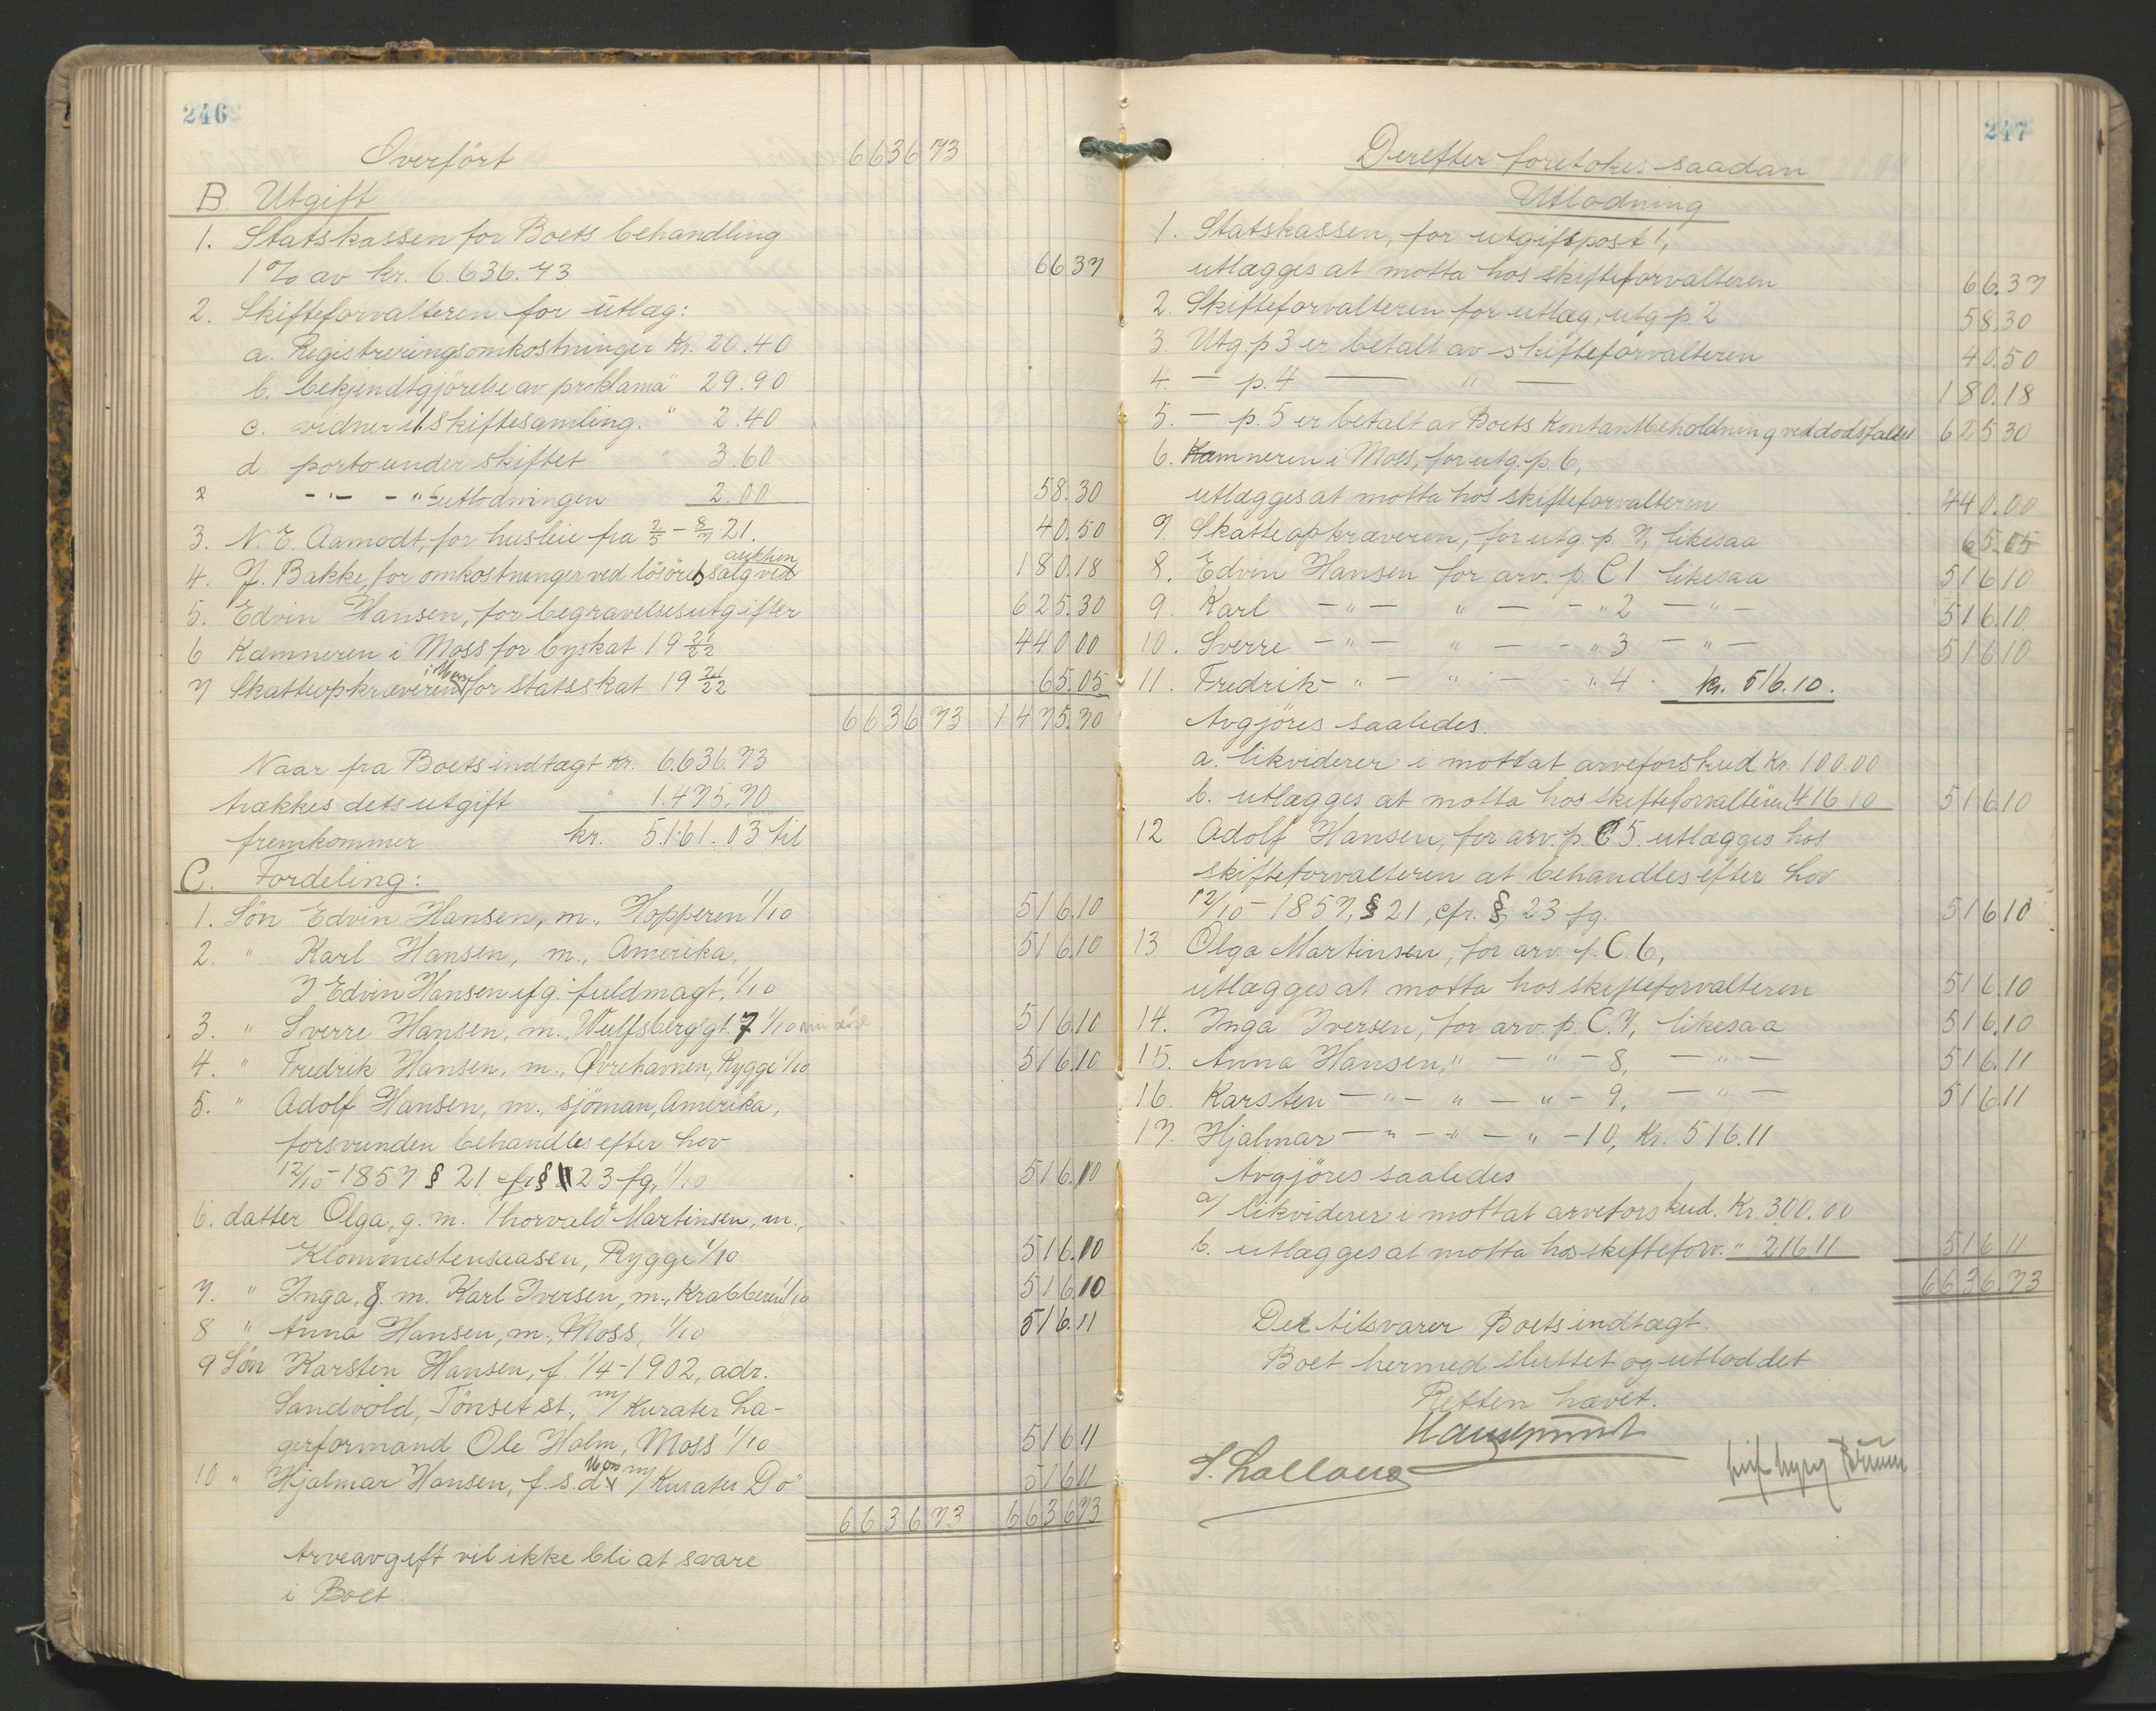 246
Overfört 6636 73
B. Utgift
1. Statskassen for Boets behandling
1% av kr. 6.636.73 66 37
2. Skifteforvalteren for utlæg:
a. Registreringsomkostninger Kr. 20.40
b. bekjendtgjörelse av proklama " 29.90
c. vidner i 1 skiftesamling. " 2.40
d. porto under skiftet " 3.60
2 -"- -"- utlodningen 2.00 58.30
3. N. E. Aamodt, for husleie fra 2/5 - 8/7 21. 40.50
4. J. Bakke, for omkostninger ved lösörets salg ved auktion 180.18
5. Edvin Hansen, for begravelsesutgifter 625.30
6 Kæmneren i Moss for byskat 19 21/22 440 00
7 Skatteopkræveren i Moss for statsskat 19 21/22 65.05
6636 73 1475.70
Naar fra Boets indtægt kr. 6.636.73
trækkes dets utgift " 1.475.70
fremkommer kr. 5.161.03 til
C. Fordeling:
1. Sön Edvin Hansen, m., Hopperen 1/10 516.10
2. " Karl Hansen, m., Amerika,
" Edvin Hansen ifg. fuldmagt, 1/10 516.10
3. " Sverre Hansen, m., Wulfsbergsgt. 7 1/10 516.10
4. " Fredrik Hansen, m., Övrehavnen, Rygge 1/10 516.10
5. " Adolf Hansen, m., sjöman, Amerika,
forsvunden behandles efter lov
12/10-1857 § 21 cfr § 23 fg., 1/10 516.10
6. datter Olga, g. m. Thorvald Martinsen, m.,
Klommestensaasen, Rygge 1/10 516.10
7. " Inga, g. m. Karl Iversen, m., Krabberen 1/10 516 10
8 " Anna Hansen, m., Moss, 1/10 516.11
9 Sön Karsten Hansen, f. 1/4-1902, adr.
Sandvold, Tönset st., m/ Kurator La-
gerformand Ole Holm, Moss 1/10 516 11
10 " Hjalmar Hansen, f. s. d. Moss m/ Kurator Do 516 11
6636 73 6636 73
Arveavgift vil ikke bli at svare
i Boet.
247
Derefter foretokes saadan
Utlodning
1. Statskassen, for utgiftspost 1,
utlægges at motta hos skifteforvalteren 66.37
2. Skifteforvalteren for utlæg, utg p. 2 58.30
3. Utg. p 3 er betalt av skifteforvalteren 40.50
4. — p. 4 — " — 180.18
5. — p. 5 er betalt av Boets Kontantbeholdning ved dødsfaldet 625 30
6. Kæmneren i Moss, for utg. p. 6,
utlægges at motta hos skifteforvalteren 440.00
7. Skatteopkræveren, for utg. p. 7, likesaa 65.05
8. Edvin Hansen for arv. p. C 1 likesaa 516 10
9. Karl — " — " — - " 2 — " — 516.10
10. Sverre — " — " — - " 3 — " — 516 10
11. Fredrik - " — " — - " 4 . kr. 516.10.
Avgjöres saaledes.
a. likviderer i mottat arveforskud Kr. 100.00
b. utlægges at motta hos skifteforvalteren " 416 10 516 10
12 Adolf Hansen, for arv. p. C 5 utlægges hos
skifteforvalteren at behandles efter lov
12/10-1857, § 21, cfr. § 23 fg. 516 10
13 Olga Martinsen, for arv. p. C. 6,
utlægges at motta hos skifteforvalteren 516 10
14. Inga Iversen, for arv. p. C. 7, likesaa 516.10
15. Anna Hansen, " — " — 8, — " — 516.11
16. Karsten — " — " — " - 9, — " — 516 11
17. Hjalmar — " — " — " - 10, Kr. 516.11
Avgjöres saaledes
a/ likviderer i mottat arveforskud. Kr. 300.00
b. utlægges at motta hos skifteforv. " 216 11 516 11
6636.73
Det tilsvarer Boets indtægt.
Boet hermed sluttet og utloddet
Retten hævet.